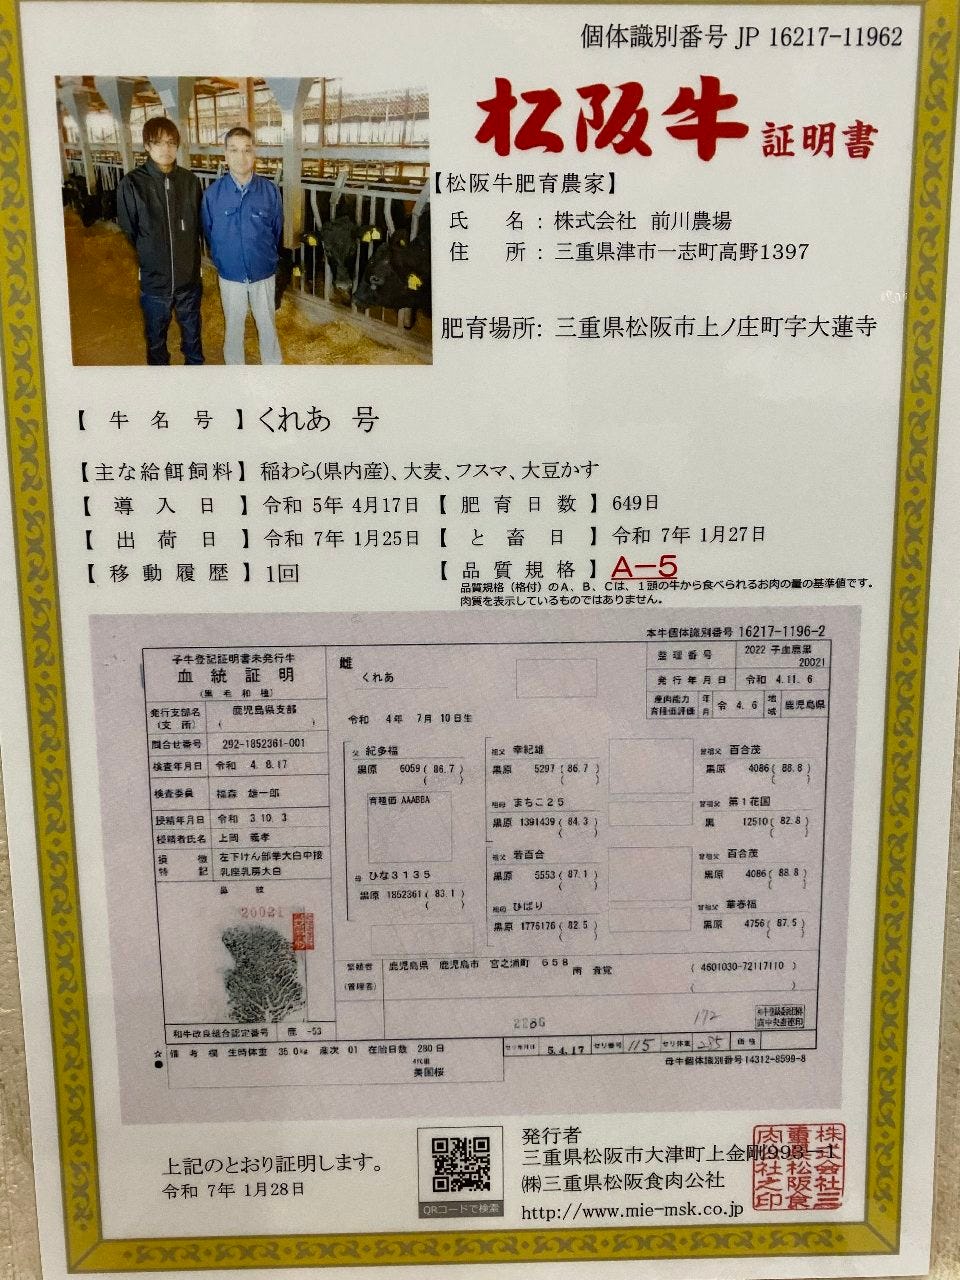 個体識別番号 JP 16217-11962
松阪牛 証明書
【松阪牛肥育農家】
氏 名 : 株式会社 前川農場
住 所 : 三重県津市一志町高野1397
肥育場所: 三重県松阪市上ノ庄町字大蓮寺
【 牛 名 号 】 くれあ 号
【主な給餌飼料】 稲わら(県内産)、大麦、フスマ、大豆かす
【 導 入 日 】 令和 5年 4月17日 【 肥 育 日 数 】 649日
【 出 荷 日 】 令和 7年 1月25日 【 と 畜 日 】 令和 7年 1月27日
【 移 動 履 歴 】 1回 【 品 質 規 格 】 A-5
品質規格（格付）のA、B、Cは、1頭の牛から食べられるお肉の量の基準値です。
肉質を表示しているものではありません。
本牛個体識別番号 16217-1196-2
子牛登記証明書未発行牛
血統証明
(黒毛和種)
雌
くれあ
整理番号 2022 子血鹿黒 20021
発行年月日 令和 4.11.6
産肉能力育種価評価 年月 令 4.6 地域 鹿児島県
発行支部名(支所) 鹿児島県支部
( )
問合せ番号 292-1852361-001
検査年月日 令和 4.8.17
検査委員 福森 雄一郎
授精年月日 令和 3.10.3
授精者氏名 上岡 義孝
損徴特記 左下けん部挙大白中接
乳座乳房大白
鼻紋
20021
和牛改良組合認定番号 鹿 -53
令和 4年 7月10日生
父 紀多福
黒原 6059( 86.7 )
( )
育種価 AAABBA
母 ひな3135
黒原 1852361( 83.1 )
( )
祖父 幸紀雄
黒原 5297( 86.7 )
( )
祖母 まちこ25
黒原 1391439( 84.3 )
( )
祖父 若百合
黒原 5553( 87.1 )
( )
祖母 ひばり
黒原 1776176( 82.5 )
( )
曾祖父 百合茂
黒原 4086( 88.8 )
( )
曾祖父 第1花国
黒 12510( 82.8 )
( )
曾祖父 百合茂
黒原 4086( 88.8 )
( )
曾祖父 華春福
黒原 4756( 87.5 )
( )
繁殖者(管理者) 鹿児島県 鹿児島市 宮之浦町 658 南 貴覚 ( 4601030-72117110 )
( )
2286 172
☆ 備考欄 生時体重 36.0kg 産次 01 在胎日数 280日
4代祖
美国桜
●
セリ年月日 5.4.17 セリ番号 115 セリ体重 285 価格
母牛個体識別番号14312-8599-8
上記のとおり証明します。
令和 7年 1月28日
QRコードで検索
発行者
三重県松阪市大津町上金剛993-1
㈱三重県松阪食肉公社
http://www.mie-msk.co.jp
株式会社三重県松阪食肉公社之印